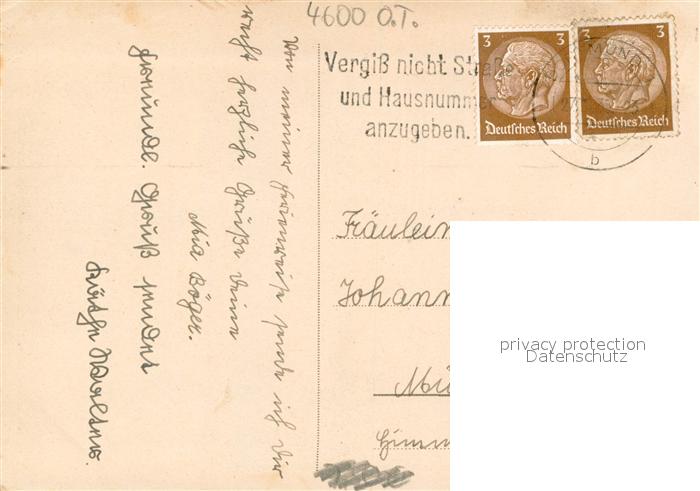 4600 O.T.
Vergiß nicht Straße
und Hausnummer
anzugeben.
3
3
Deutsches Reich
Deutsches Reich
MUND
b
Von meiner Ferienreise sende ich Dir
recht herzliche Grüße Deine
Mia Böger.
Freundl. Gruß sendet
Käthe
Fräulein
Johann
Mü
privacy protection
Datenschutz